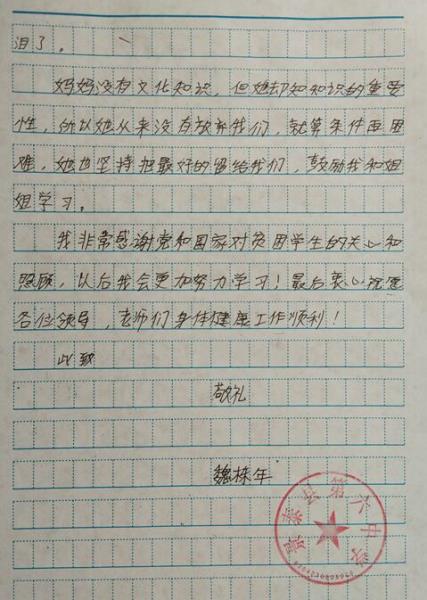 泪了。
妈妈没有文化知识，但她却知知识的重要
性，所以她从来没有放弃我们，就算条件再困
难，她也坚持把最好的留给我们，鼓励我和姐
姐学习。
我非常感谢党和国家对贫困学生的关心和
照顾，以后我会更加努力学习！最后衷心祝愿
各位领导，老师们身体健康工作顺利！
此致
敬礼
魏栋年
县第六中学